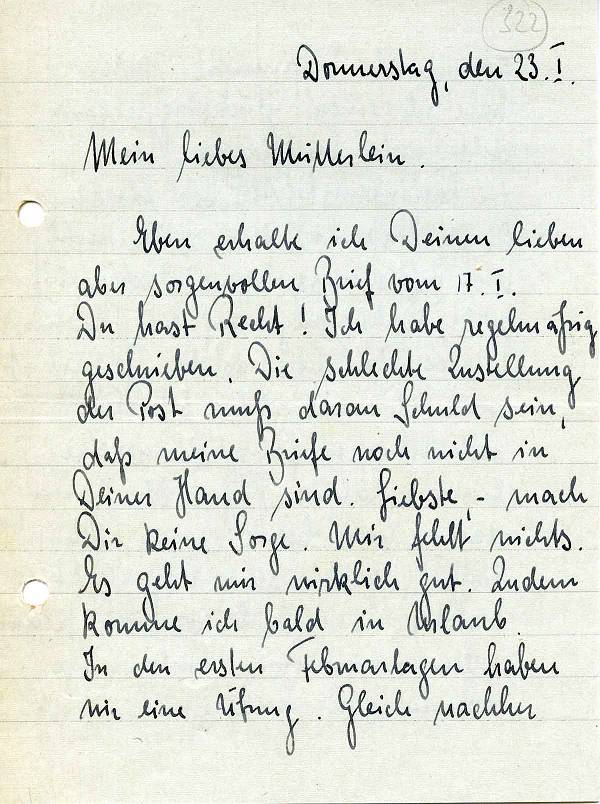 322
Donnerstag, den 23. I.
Mein liebes Mütterlein.
Eben erhalte ich Deinen lieben
aber sorgenvollen Brief vom 17. I.
Du hast Recht! Ich habe regelmäßig
geschrieben. Die schlechte Zustellung
der Post muß daran Schuld sein,
daß meine Briefe noch nicht in
Deiner Hand sind. Liebste, - mach
Dir keine Sorge. Mir fehlt nichts.
Es geht mir wirklich gut. Zudem
komme ich bald in Urlaub.
In den ersten Februartagen haben
wir eine Übung. Gleich nachher